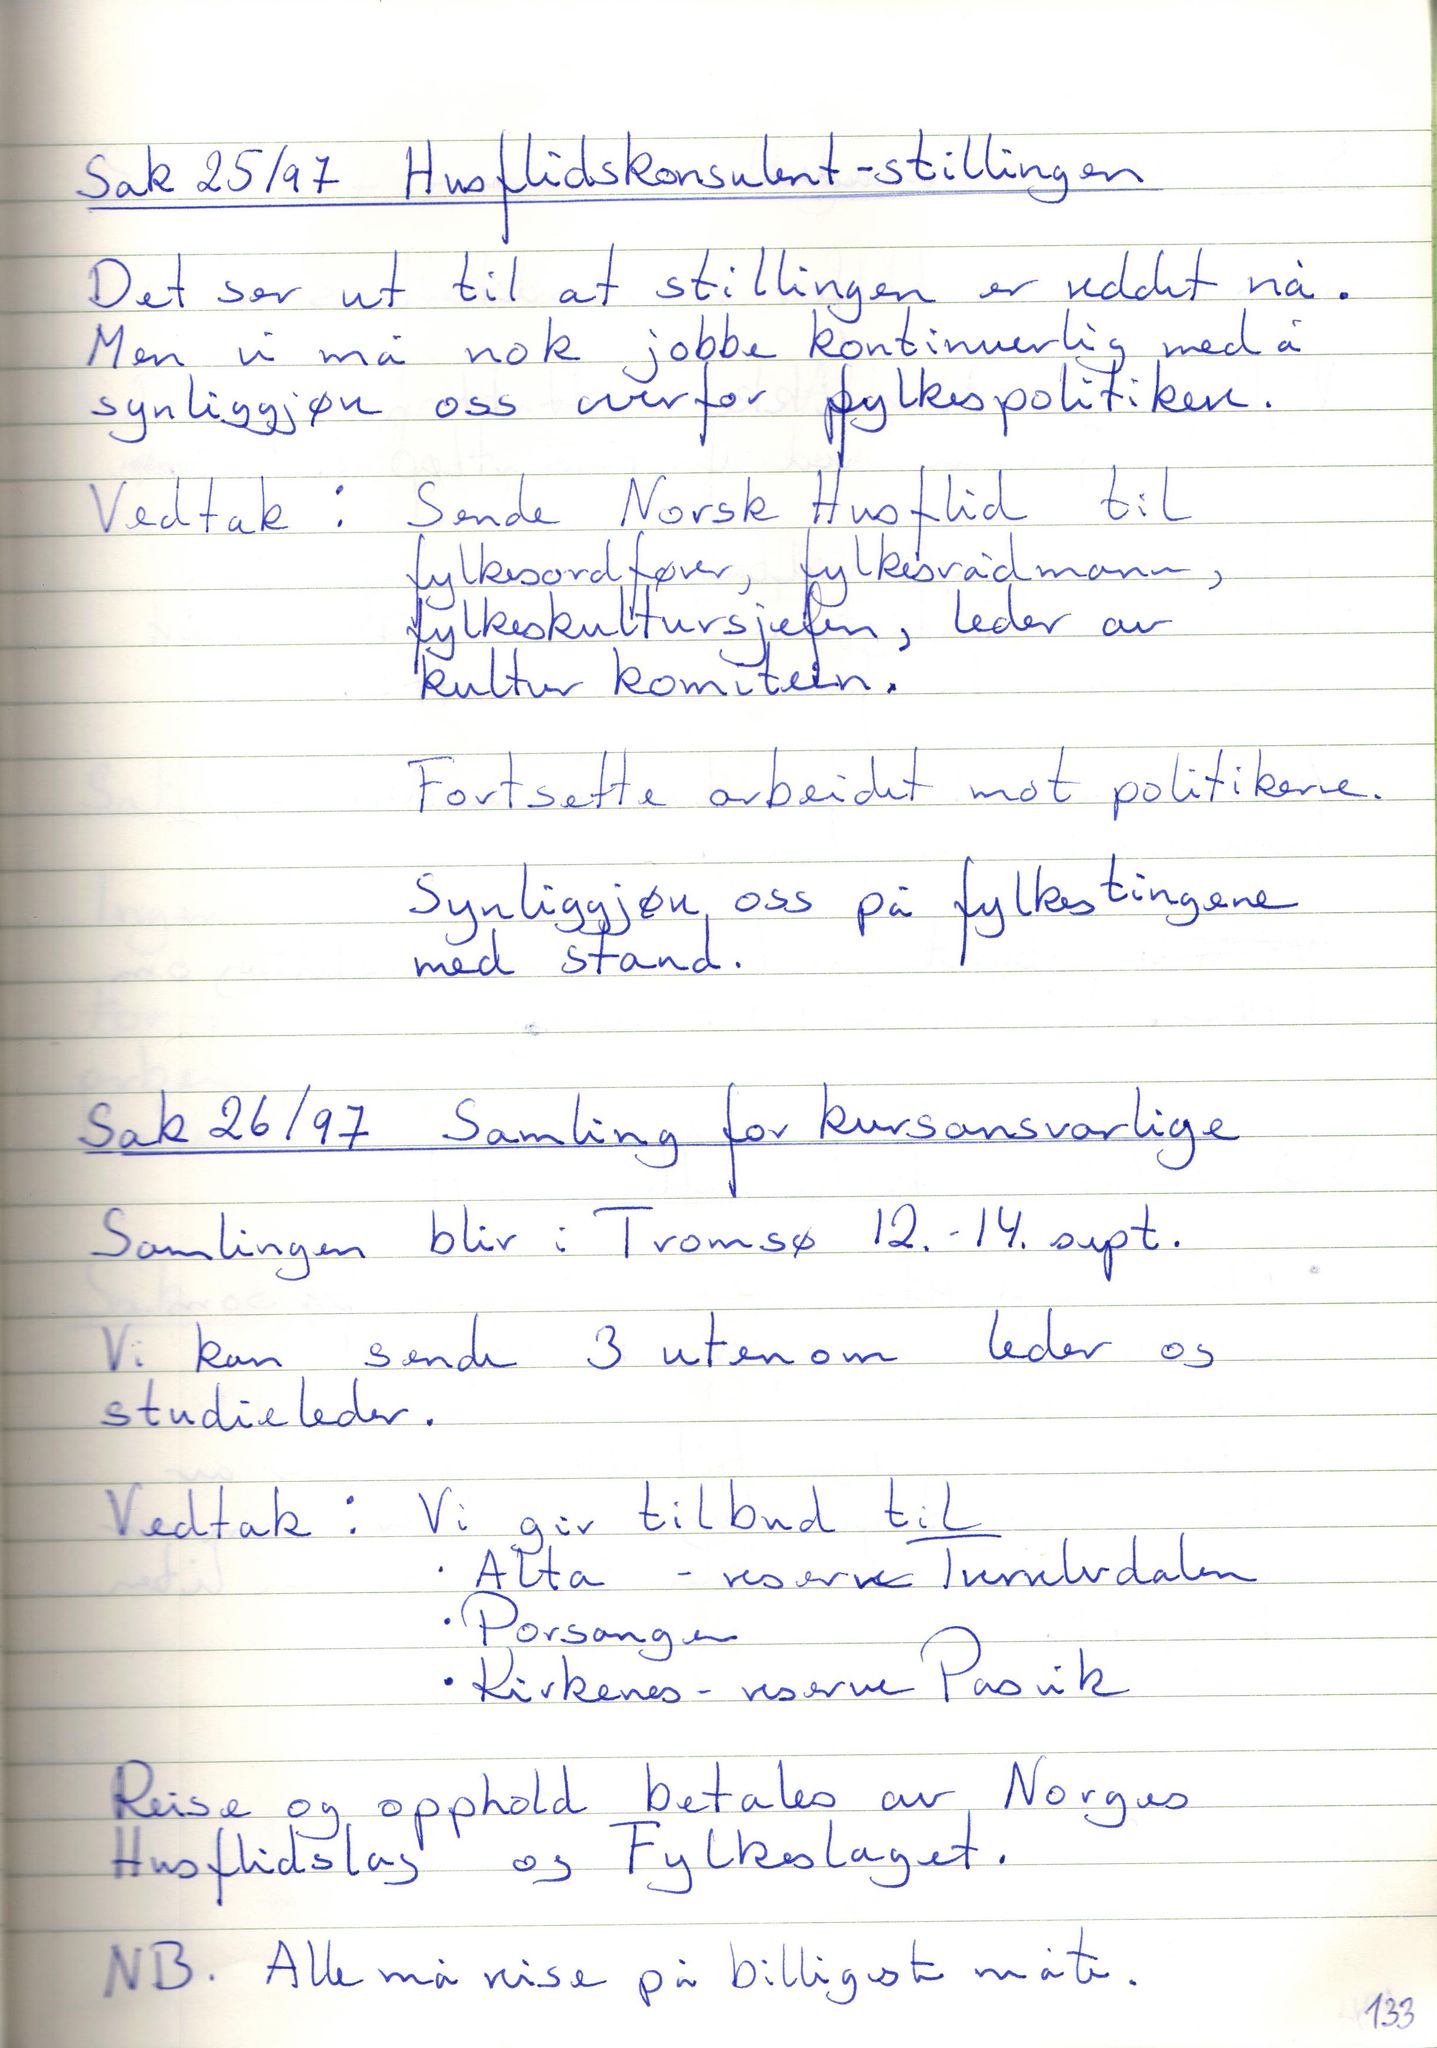 Sak 25/97 Husflidskonsulent-stillingen
Det ser ut til at stillingen er reddet nå.
Men vi må nok jobbe kontinuerlig med å
synliggjøre oss overfor fylkespolitikere.
Vedtak: Sende Norsk Husflid til
fylkesordfører, fylkesrådmann,
fylkeskultursjefen, leder av
kultur komiteen.
Fortsette arbeidet mot politikerne.
Synliggjøre oss på fylkestingene
med stand.
Sak 26/97 Samling for kursansvarlige
Samlingen blir i Tromsø 12.-14. sept.
Vi kan sende 3 utenom leder og
studieleder.
Vedtak: Vi gir tilbud til
· Alta - reserve Tverrelvdalen
· Porsanger
· Kirkenes - reserve Pasvik
Reise og opphold betales av Norges
Husflidslag og Fylkeslaget.
NB. Alle må reise på billigste måte.
133